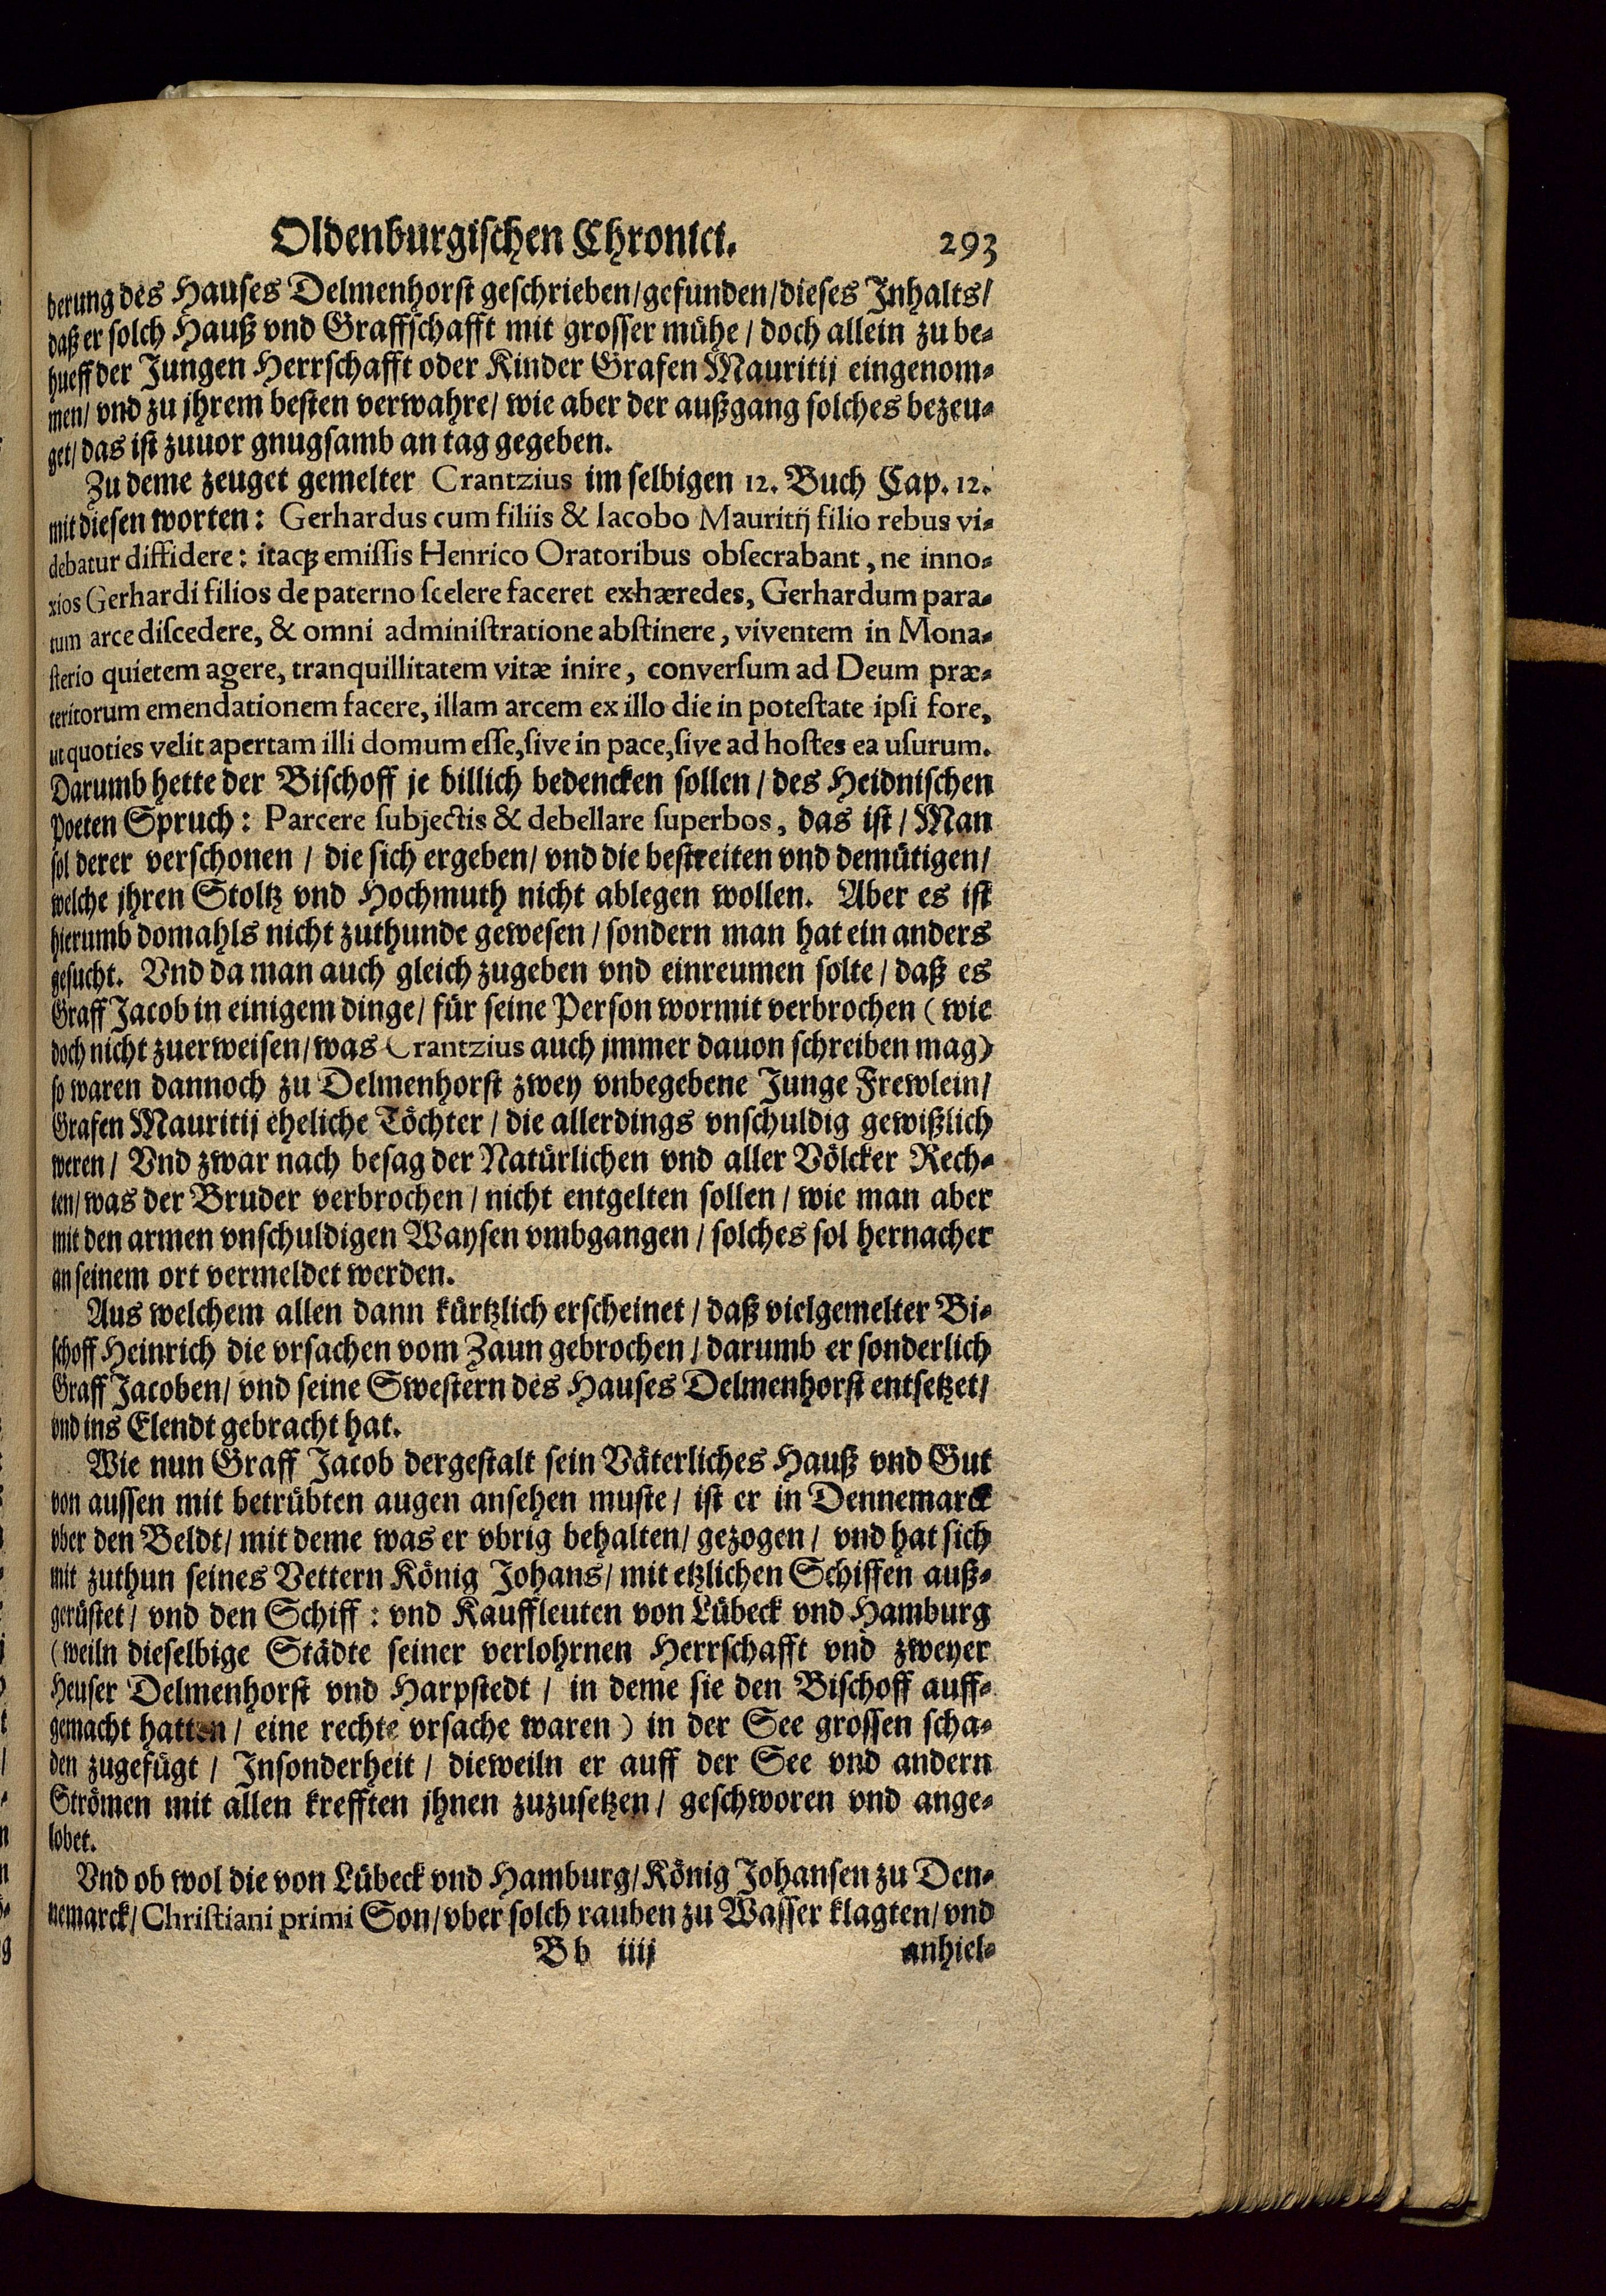 Oldenburgischen Chronici. 293
derung des Hauses Delmenhorst geschrieben/gefunden/dieses Inhalts/
daß er solch Hauß vnd Graffschafft mit grosser mühe/ doch allein zu be-
hueff der Jungen Herrschafft oder Kinder Grafen Mauritij eingenom-
men/ vnd zu jhrem besten verwahre/ wie aber der außgang solches bezeu-
get/ das ist zuuor gnugsamb an tag gegeben.
Zu deme zeuget gemelter Crantzius im selbigen 12. Buch Cap. 12.
mit diesen worten: Gerhardus cum filiis & Iacobo Mauritij filio rebus vi-
debatur diffidere: itacꝫ emiſſis Henrico Oratoribus obſecrabant, ne inno-
xios Gerhardi filios de paterno ſcelere faceret exhæredes, Gerhardum para-
tum arce diſcedere, & omni adminiſtratione abſtinere, viventem in Mona-
ſterio quietem agere, tranquillitatem vitæ inire, converſum ad Deum præ-
teritorum emendationem facere, illam arcem ex illo die in poteſtate ipſi fore,
ut quoties velit apertam illi domum eſſe, ſive in pace, ſive ad hoſtes ea uſurum.
Darumb hette der Bischoff je billich bedencken sollen/ des Heidnischen
Poeten Spruch: Parcere ſubjectis & debellare ſuperbos, das ist/ Man
sol derer verschonen/ die sich ergeben/ vnd die bestreiten vnd demütigen/
welche jhren Stoltz vnd Hochmuth nicht ablegen wollen. Aber es ist
hierumb domahls nicht zuthunde gewesen/ sondern man hat ein anders
gesucht. Vnd da man auch gleich zugeben vnd einreumen solte/ daß es
Graff Jacob in einigem dinge/ für seine Person wormit verbrochen (wie
doch nicht zuerweisen/ was Crantzius auch jmmer dauon schreiben mag)
so waren dannoch zu Delmenhorst zwey vnbegebene Junge Frewlein/
Grafen Mauritij eheliche Töchter/ die allerdings vnschuldig gewißlich
weren/ Vnd zwar nach besag der Natürlichen vnd aller Völcker Rech-
ten/ was der Bruder verbrochen/ nicht entgelten sollen/ wie man aber
mit den armen vnschuldigen Waysen vmbgangen/ solches sol hernacher
an seinem ort vermeldet werden.
Aus welchem allen dann kürtzlich erscheinet/ daß vielgemelter Bi-
schoff Heinrich die vrsachen vom Zaun gebrochen/ darumb er sonderlich
Graff Jacoben/ vnd seine Swestern des Hauses Delmenhorst entsetzet/
vnd ins Elendt gebracht hat.
Wie nun Graff Jacob dergestalt sein Väterliches Hauß vnd Gut
von aussen mit betrübten augen ansehen muste/ ist er in Dennemarck
vber den Beldt/ mit deme was er vbrig behalten/ gezogen/ vnd hat sich
mit zuthun seines Vettern König Johans/ mit etzlichen Schiffen auß-
gerüstet/ vnd den Schiff: vnd Kauffleuten von Lübeck vnd Hamburg
(weiln dieselbige Städte seiner verlohrnen Herrschafft vnd zweyer
Heuser Delmenhorst vnd Harpstedt/ in deme sie den Bischoff auff-
gemacht hatten/ eine rechte vrsache waren) in der See grossen scha-
den zugefügt/ Insonderheit/ dieweiln er auff der See vnd andern
Strömen mit allen krefften jhnen zuzusetzen/ geschworen vnd ange-
lobet.
Vnd ob wol die von Lübeck vnd Hamburg/ König Johansen zu Den-
nemarck/ Chriſtiani primi Son/ vber solch rauben zu Wasser klagten/ vnd
Bb iiij anhiel-